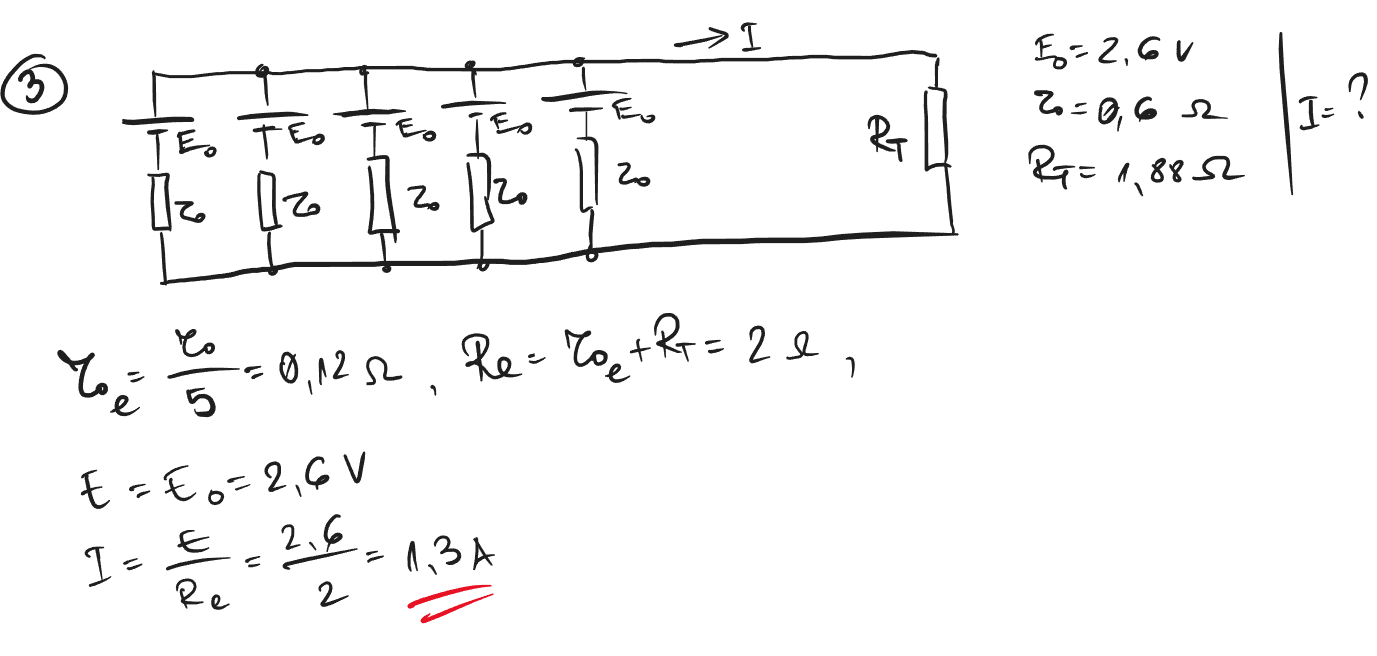 3
→ I
E₀ E₀ E₀ E₀ E₀
r₀ r₀ r₀ r₀ r₀
R_T
E₀ = 2,6 V
r₀ = 0,6 Ω
R_T = 1,88 Ω
I = ?
r₀ₑ = r₀/5 = 0,12 Ω , Rₑ = r₀ₑ + R_T = 2 Ω ,
E = E₀ = 2,6 V
I = E/Rₑ = 2,6/2 = 1,3 A